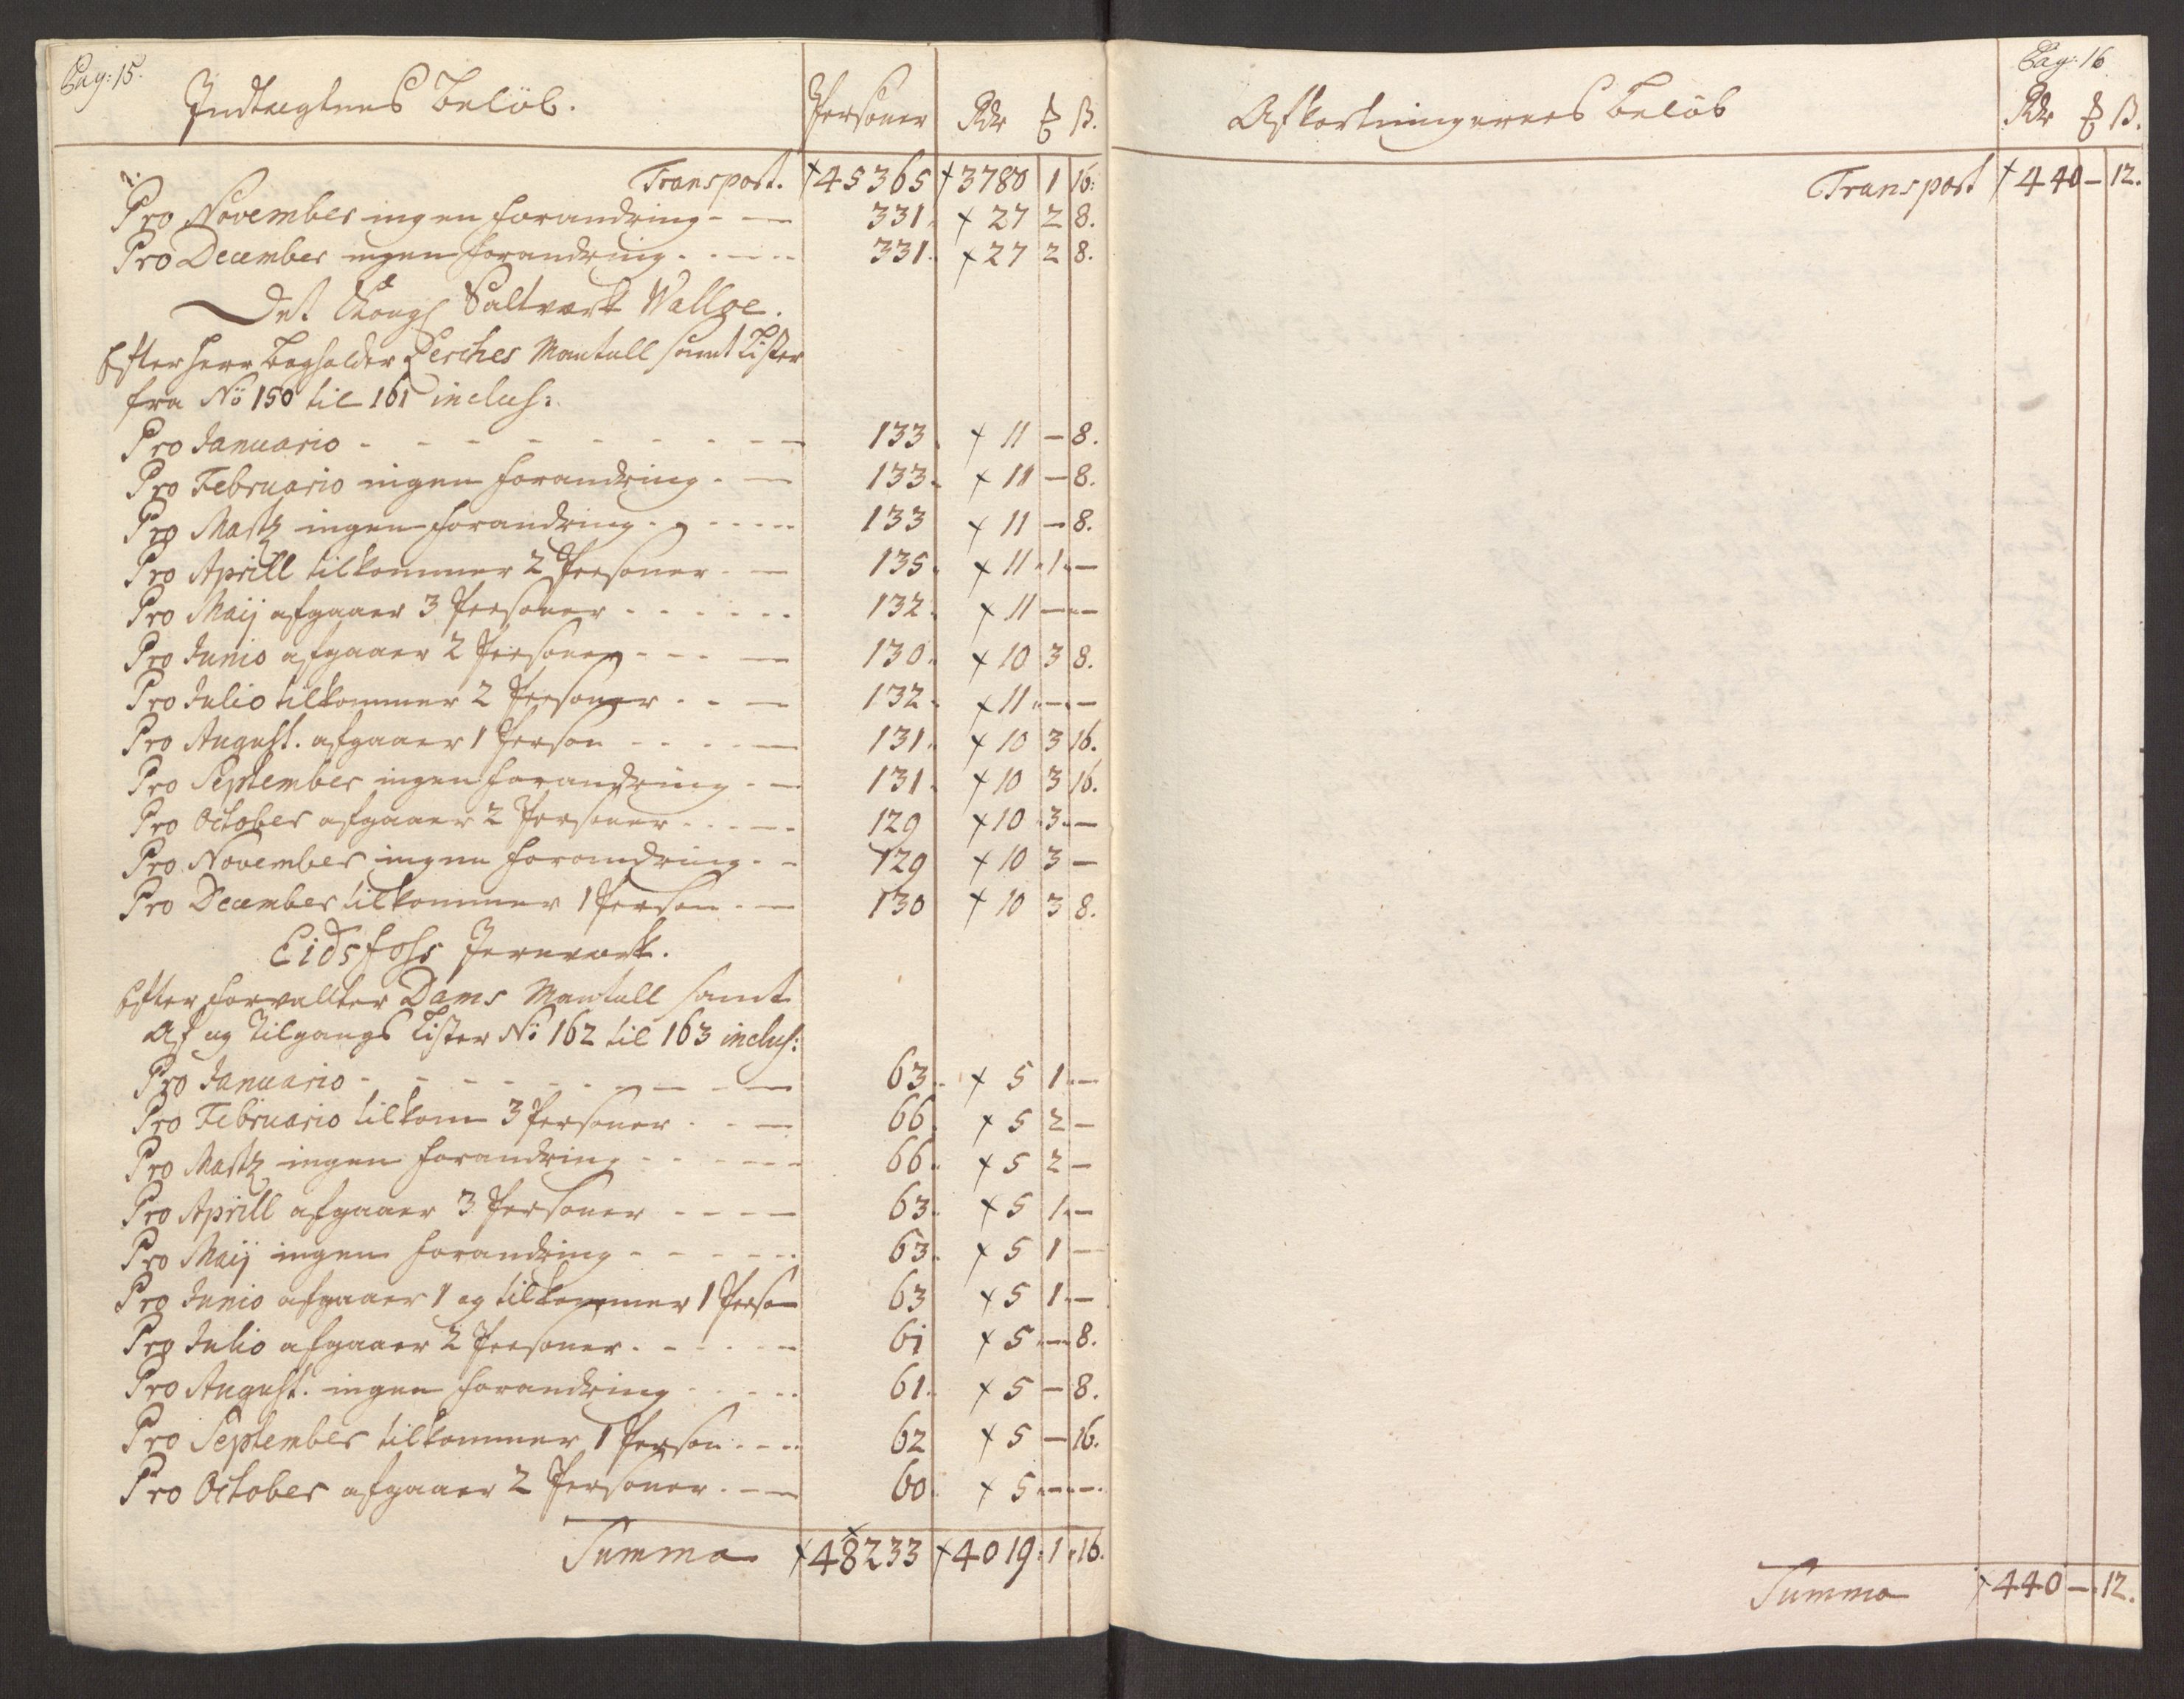 Pag: 15.
Indtægtens beløb. Personer Rdr ß.
Transport. 45365 3780 1 16.
Pro November ingen forandring - - 331. 27 2 8.
Pro December ingen forandring - - 331. 27 2 8.
Det Kongl Saltværk Walloe.
Efter Herr bogholder Lerches Mantall samt Lister
fra No 150 til 161 inclus:
Pro Januario - - - 133. 11 - 8.
Pro Februario ingen forandring - - 133. 11 - 8.
Pro Martz ingen forandring - - 133 11 - 8.
Pro Aprill tilkommer 2 Personer - - 135. 11 1 -
Pro Maij afgaaer 3 Personer - - 132. 11 - -
Pro Junio afgaaer 2 Personer - - 130. 10 3 8.
Pro Julio tilkommer 2 Personer - - 132. 11 - -
Pro August. afgaaer 1 Person - - 131. 10 3 16.
Pro September ingen forandring - - 131. 10 3 16.
Pro October afgaaer 2 Personer - - 129 10 3 -
Pro November ingen forandring - - 129 10 3 -
Pro December tilkommer 1 Person - - 130 10 3 8.
Eidsfoss Jernværk.
Efter forvallter Dams Mantall samt
Af og Tilgangs Lister No 162 til 163 inclus:
Pro Januario - - - 63. 5 1 -
Pro Februario tilkom 3 Personer - - 66. 5 2 -
Pro Martz ingen forandring - - 66. 5 2 -
Pro Aprill afgaaer 3 Personer - - 63. 5 1 -
Pro Maij ingen forandring - - 63. 5 1 -
Pro Junio afgaaer 1 og tilkommer 1 Person 63 5 1 -
Pro Julio afgaaer 2 Personer - - 61 5 - 8.
Pro August. ingen forandring - - 61. 5 - 8.
Pro September tilkommer 1 Person - - 62 5 - 16.
Pro October afgaaer 2 Personer - - 60. 5 - -
Summa 48233 4019 1 16.
Pag: 16
Afkortningernes beløb Rdr ß.
Transport 440 - 12.
Summa 440 - 12.